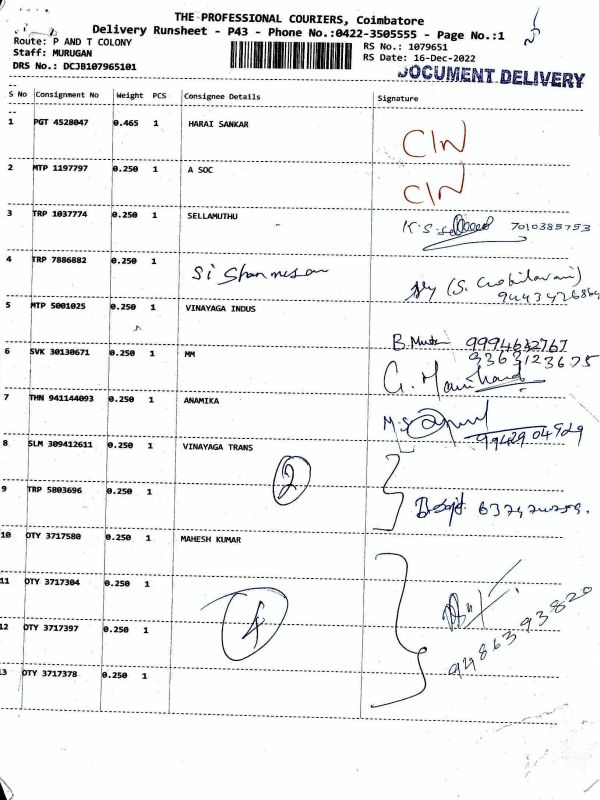 THE PROFESSIONAL COURIERS, Coimbatore
Delivery Runsheet - P43 - Phone No.:0422-3505555 - Page No.:1
Route: P AND T COLONY RS No.: 1079651
Staff: MURUGAN RS Date: 16-Dec-2022
DRS No.: DCJB107965101 DOCUMENT DELIVERY
S No Consignment No Weight PCS Consignee Details Signature
1 PGT 4528047 0.465 1 HARAI SANKAR CIN
2 MTP 1197797 0.250 1 A SOC CIN
3 TRP 1037774 0.250 1 SELLAMUTHU K.S. 7010385753
4 TRP 7886882 0.250 1 (S.
5 MTP 5001025 0.250 1 VINAYAGA INDUS B.
6 SVK 30130671 0.250 1 MM 9363123675
G.
7 THN 941144093 0.250 1 ANAMIKA M.S
9942904929
8 SLM 309412611 0.250 1 VINAYAGA TRANS 2
9 TRP 5803696 0.250 1
10 OTY 3717580 0.250 1 MAHESH KUMAR
11 OTY 3717304 0.250 1
12 OTY 3717397 0.250 1 4 9486393820
13 OTY 3717378 0.250 1